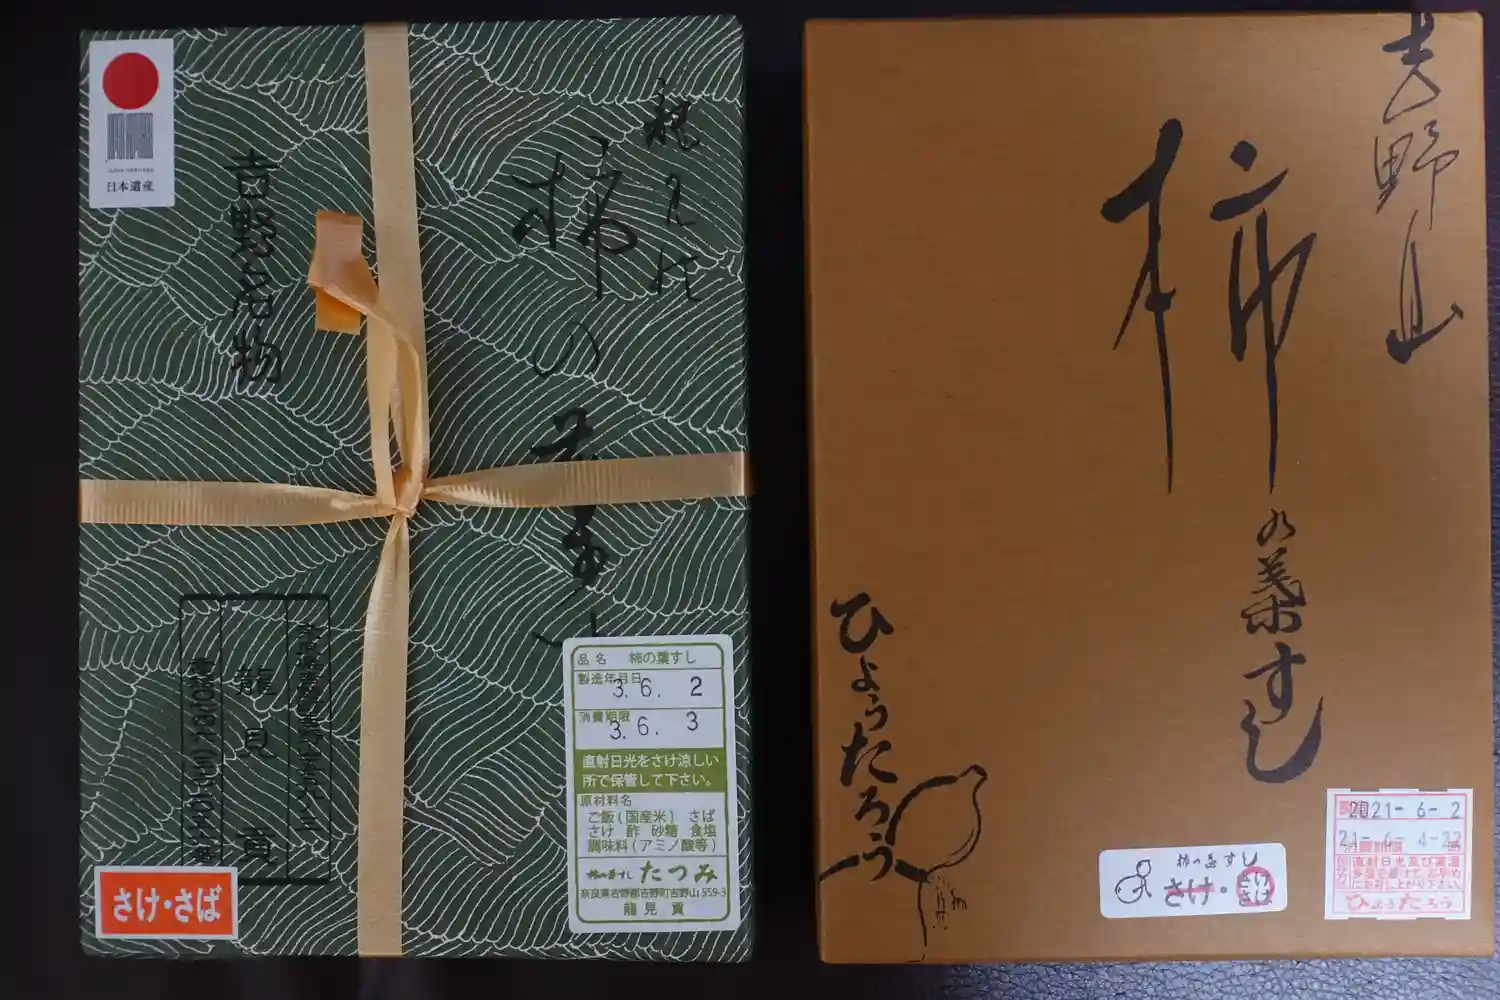 日本遺産
吉野名物
柿の葉すし
龍見貢
さけ・さば
品名 柿の葉すし
製造年月日
3. 6. 2
消費期限
3. 6. 3
直射日光をさけ涼しい
所で保管して下さい。
原材料名
ご飯(国産米) さば
さけ 酢 砂糖 食塩
調味料(アミノ酸等)
柿の葉すし たつみ
奈良県吉野郡吉野町吉野山559-3
龍見 貢
吉野山
柿の葉すし
ひょうたろう
柿の葉すし
さけ・
2021- 6- 2
21- 6- 4-22
消費期限
直射日光及び高温
多湿を避けて お早め
にお召し上がり下さい。
ひょうたろう